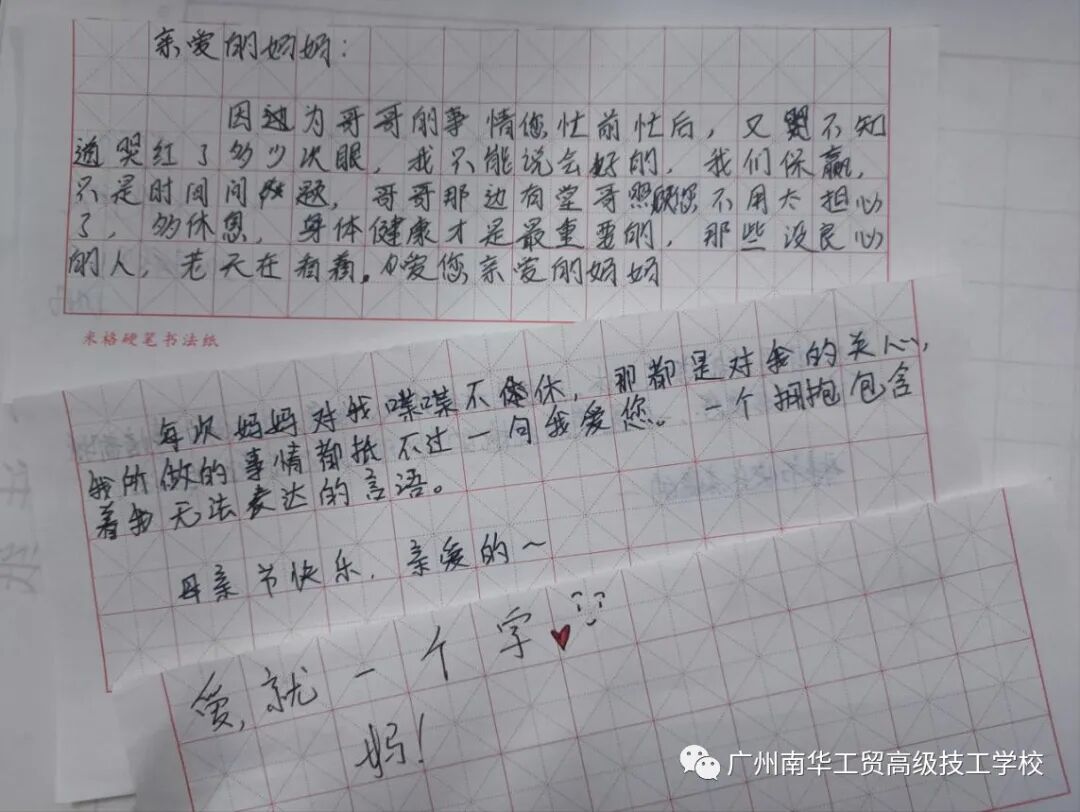 亲爱的妈妈：
因为哥哥的事情您忙前忙后，又不知
道哭红了多少次眼，我只能说会好的，我们保赢，
只是时间问题，哥哥那边有堂哥照顾您不用太担心
了，多休息，身体健康才是最重要的，那些没良心
的人，老天在看着。爱您亲爱的妈妈
米格硬笔书法纸
每次妈妈对我喋喋不休，那都是对我的关心，
我所做的事情都抵不过一句我爱您。一个拥抱包含
着我无法表达的言语。
母亲节快乐，亲爱的~
爱，就一个字
妈！
广州南华工贸高级技工学校